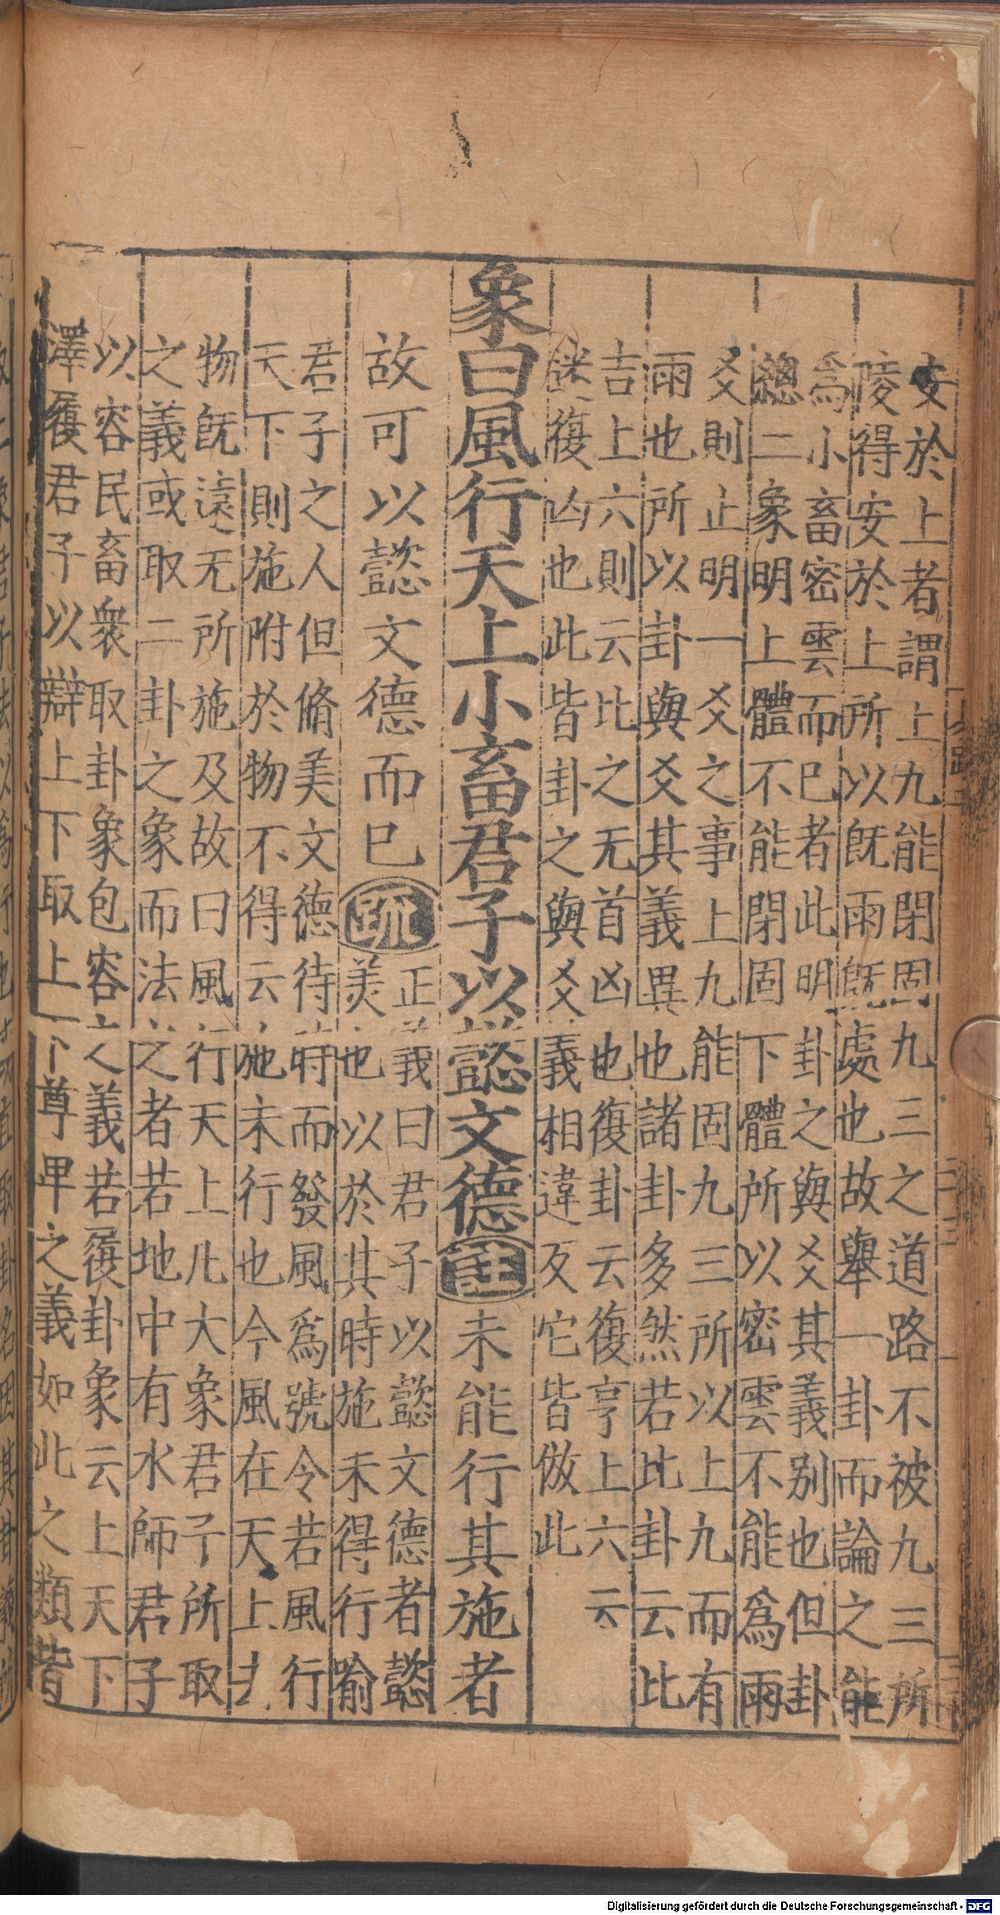 安於上者謂上九能閉固九三之道路不被九三所
陵得安於上所以旣雨旣處也故舉一卦而論之能
爲小畜密雲而巳者此明卦之與爻其義別也但卦
總二象明上體不能閉固下體所以密雲不能爲雨
爻則止明一爻之事上九能固九三所以上九而有
雨也所以卦與爻其義異也諸卦多然若比卦云比
吉上六則云比之无首凶也復卦云復亨上六云
迷復凶也此皆卦之與爻義相違反它皆倣此
象曰風行天上小畜君子以懿文德註未能行其施者
故可以懿文德而巳疏
正義曰君子以懿文德者懿
美也以於其時施未得行喻
君子之人但脩美文德待時而發風爲號令若風行
天下則施附於物不得云施未行也今風在天上去
物旣遠无所施及故曰風行天上凡大象君子所取
之義或取二卦之象而法之者若地中有水師君子
以容民畜衆取卦象包容之義若履卦象云上天下
澤履君子以辯上下取上下尊卑之義如此之類皆
Digitalisierung gefördert durch die Deutsche Forschungsgemeinschaft - DFG